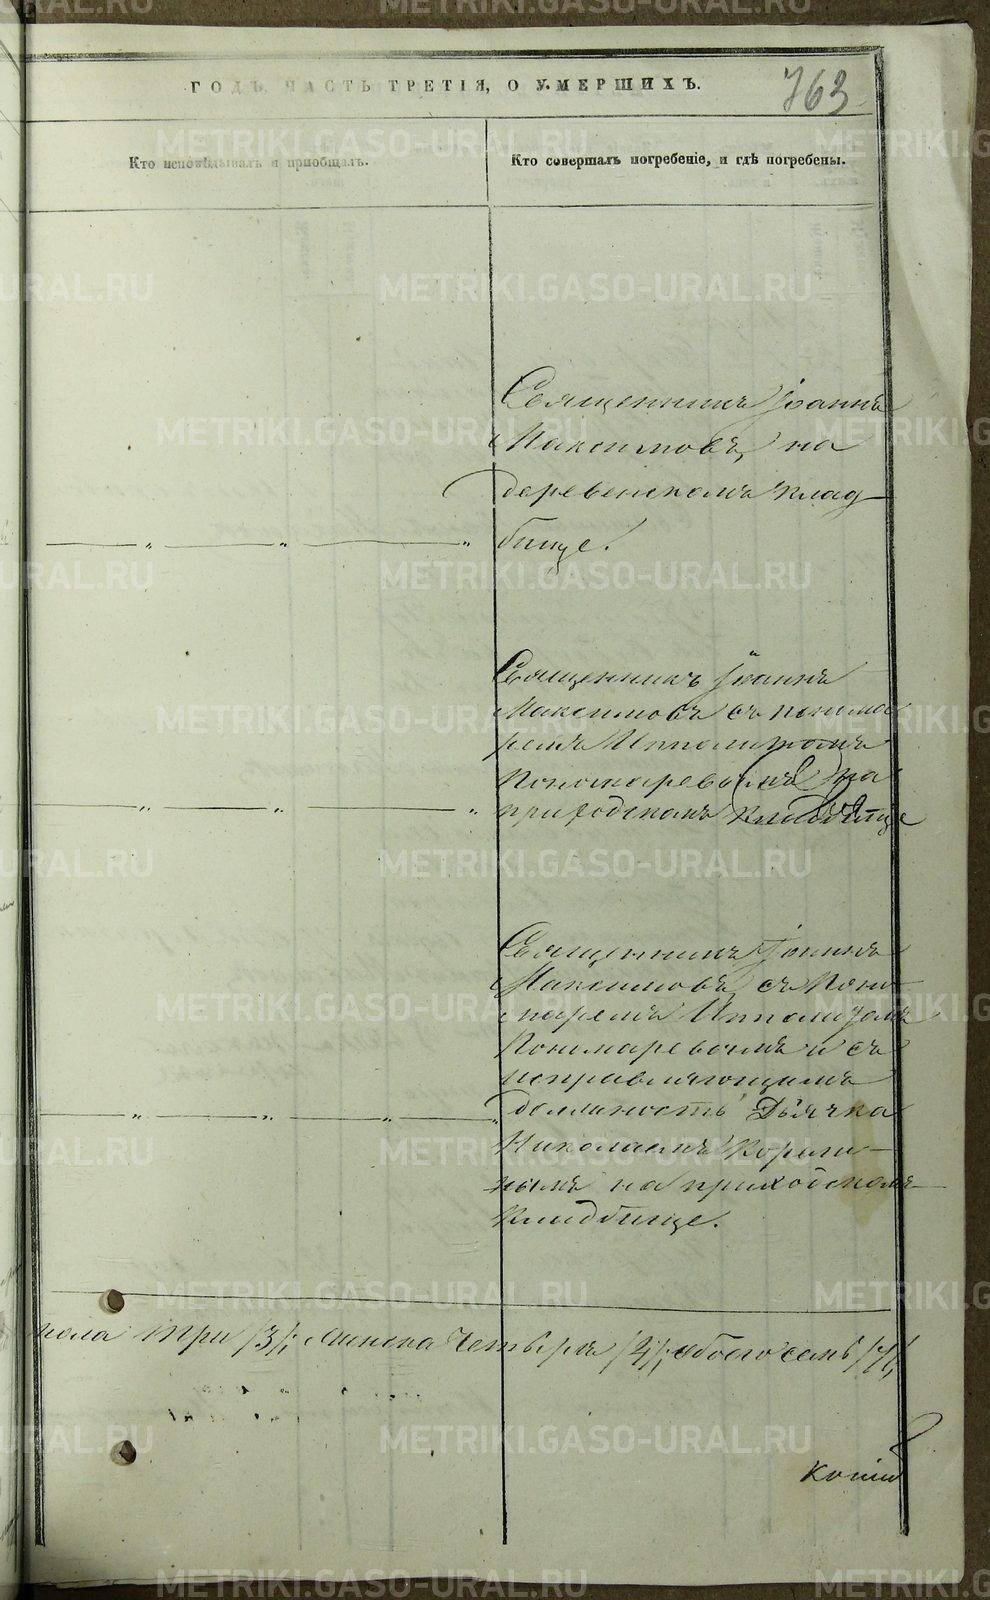 ГОДЪ ЧАСТЬ ТРЕТІЯ, О УМЕРШИХЪ.
763
Кто исповѣдывалъ и пріобщалъ.
Кто совершалъ погребеніе, и гдѣ погребены.
Священникъ Іоаннъ
Максимовъ, на
деревенскомъ клад
бище.
Священникъ Іоаннъ
Максимовъ съ понома
ремъ Ипполитомъ
Пономаревымъ на
приходскомъ кладбище
Священникъ Іоаннъ
Максимовъ, съ Поно
маремъ Ипполитомъ
Пономаревымъ и съ
исправляющимъ
должность Дьячка
Николаемъ
нымъ на приходскомъ
кладбище.
пола три /3/; женска четыре /4/; обоего семь /7/,
METRIKI.GASO-URAL.RU